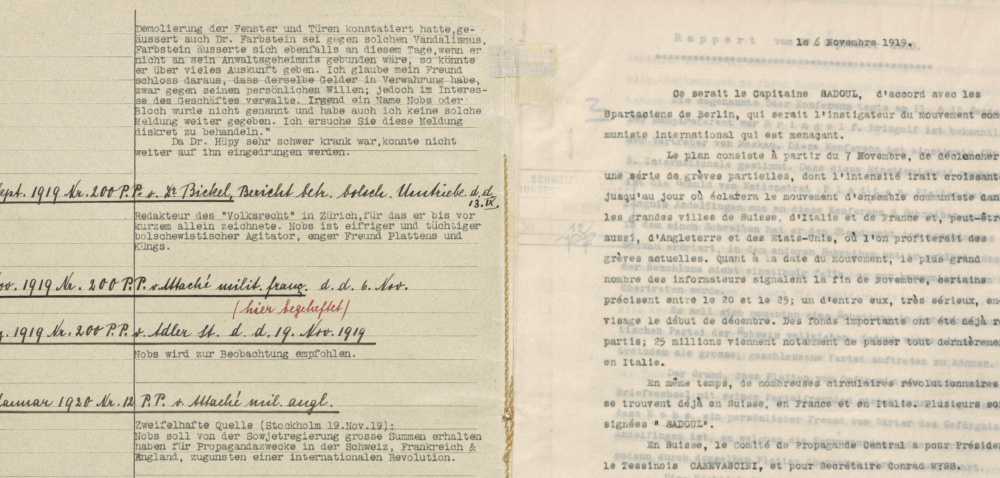 Demolierung der Fenster und Türen konstatiert hatte,ge-
äussert auch Dr. Farbstein sei gegen solchen Vandalismus,
Farbstein äusserte sich ebenfalls an diesem Tage,wenn er
nicht an sein Anwaltsgeheimnis gebunden wäre, so könnte
er über vieles Auskunft geben. Ich glaube mein Freund
schloss daraus, dass derselbe Gelder in Verwahrung habe,
zwar gegen seinen persönlichen Willen; jedoch im Interes-
se des Geschäftes verwalte. Irgend ein Name Nobs oder
Bloch wurde nicht genannt und habe auch ich keine solche
Meldung weiter gegeben. Ich ersuche Sie diese Meldung
diskret zu behandeln."
Da Dr. Hüpy sehr schwer krank war,konnte nicht
weiter auf ihn eingedrungen werden.
ept. 1919 Nr. 200 P.P. v. Dr Bickel, Bericht betr. bolsch. Umtriebe d.d.
13. IX.
Redakteur des "Volksrecht" in Zürich,für das er bis vor
kurzem allein zeichnete. Nobs ist eifriger und tüchtiger
bolschewistischer Agitator, enger Freund Plattens und
Küngs.
ov. 1919 Nr. 200 P.P. v. Attaché milit. franç. d. d. 6. Nov.
(hier begeheftet)
z. 1919 Nr. 200 P.P. v. Adler St. d. d. 19. Nov. 1919
Nobs wird zur Beobachtung empfohlen.
Januar 1920 Nr. 12 P.P. v. Attaché mil. angl.
Zweifelhafte Quelle (Stockholm 19.Nov.19):
Nobs soll von der Sowjetregierung grosse Summen erhalten
haben für Propagandazwecke in der Schweiz, Frankreich &
England, zugunsten einer internationalen Revolution.
Rapport vom
le 6 Novembre 1919.
Ce serait le Capitaine SADOUL, d'accord avec les
Spartaciens de Berlin, qui serait l'instigateur du mouvement com
muniste international qui est menaçant.
Le plan consiste à partir du 7 Novembre, de déclencher
une série de grèves partielles, dont l'intensité irait croissant
jusqu'au jour où éclatera le mouvement d'ensemble communiste dan
les grandes villes de Suisse, d'Italie et de France et, peut-êtr
aussi, d'Angleterre et des Etats-Unis, où l'on profiterait des
grèves actuelles. quant à la date du mouvement, le plus grand
nombre des informateurs signalent la fin de Novembre, certains
précisent entre le 20 et le 25; un d'entre eux, très sérieux, en
visage le début de décembre. Des fonds importants ont été déjà r
partis; 25 millions viennent notamment de passer tout dernièreme
en Italie.
En même temps, de nombreuses circulaires révolutionnaires
se trouvent déjà en Suisse, en France et en Italie. Plusieurs so
signées " SADOUL".
En Suisse, le Comité de Propagande Central a pour Préside
le Tessinois CANEVASCINI, et pour Secrétaire Conrad WYSS.